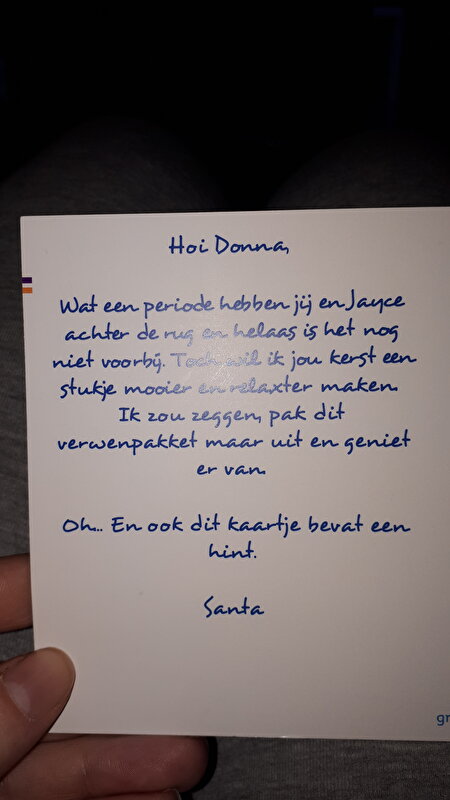 Hoi Donna,
Wat een periode hebben jij en Jayce
achter de rug en helaas is het nog
niet voorbij. Toch wil ik jou kerst een
stukje mooier en relaxter maken.
Ik zou zeggen, pak dit
verwenpakket maar uit en geniet
er van.
Oh... En ook dit kaartje bevat een
hint.
Santa
gr